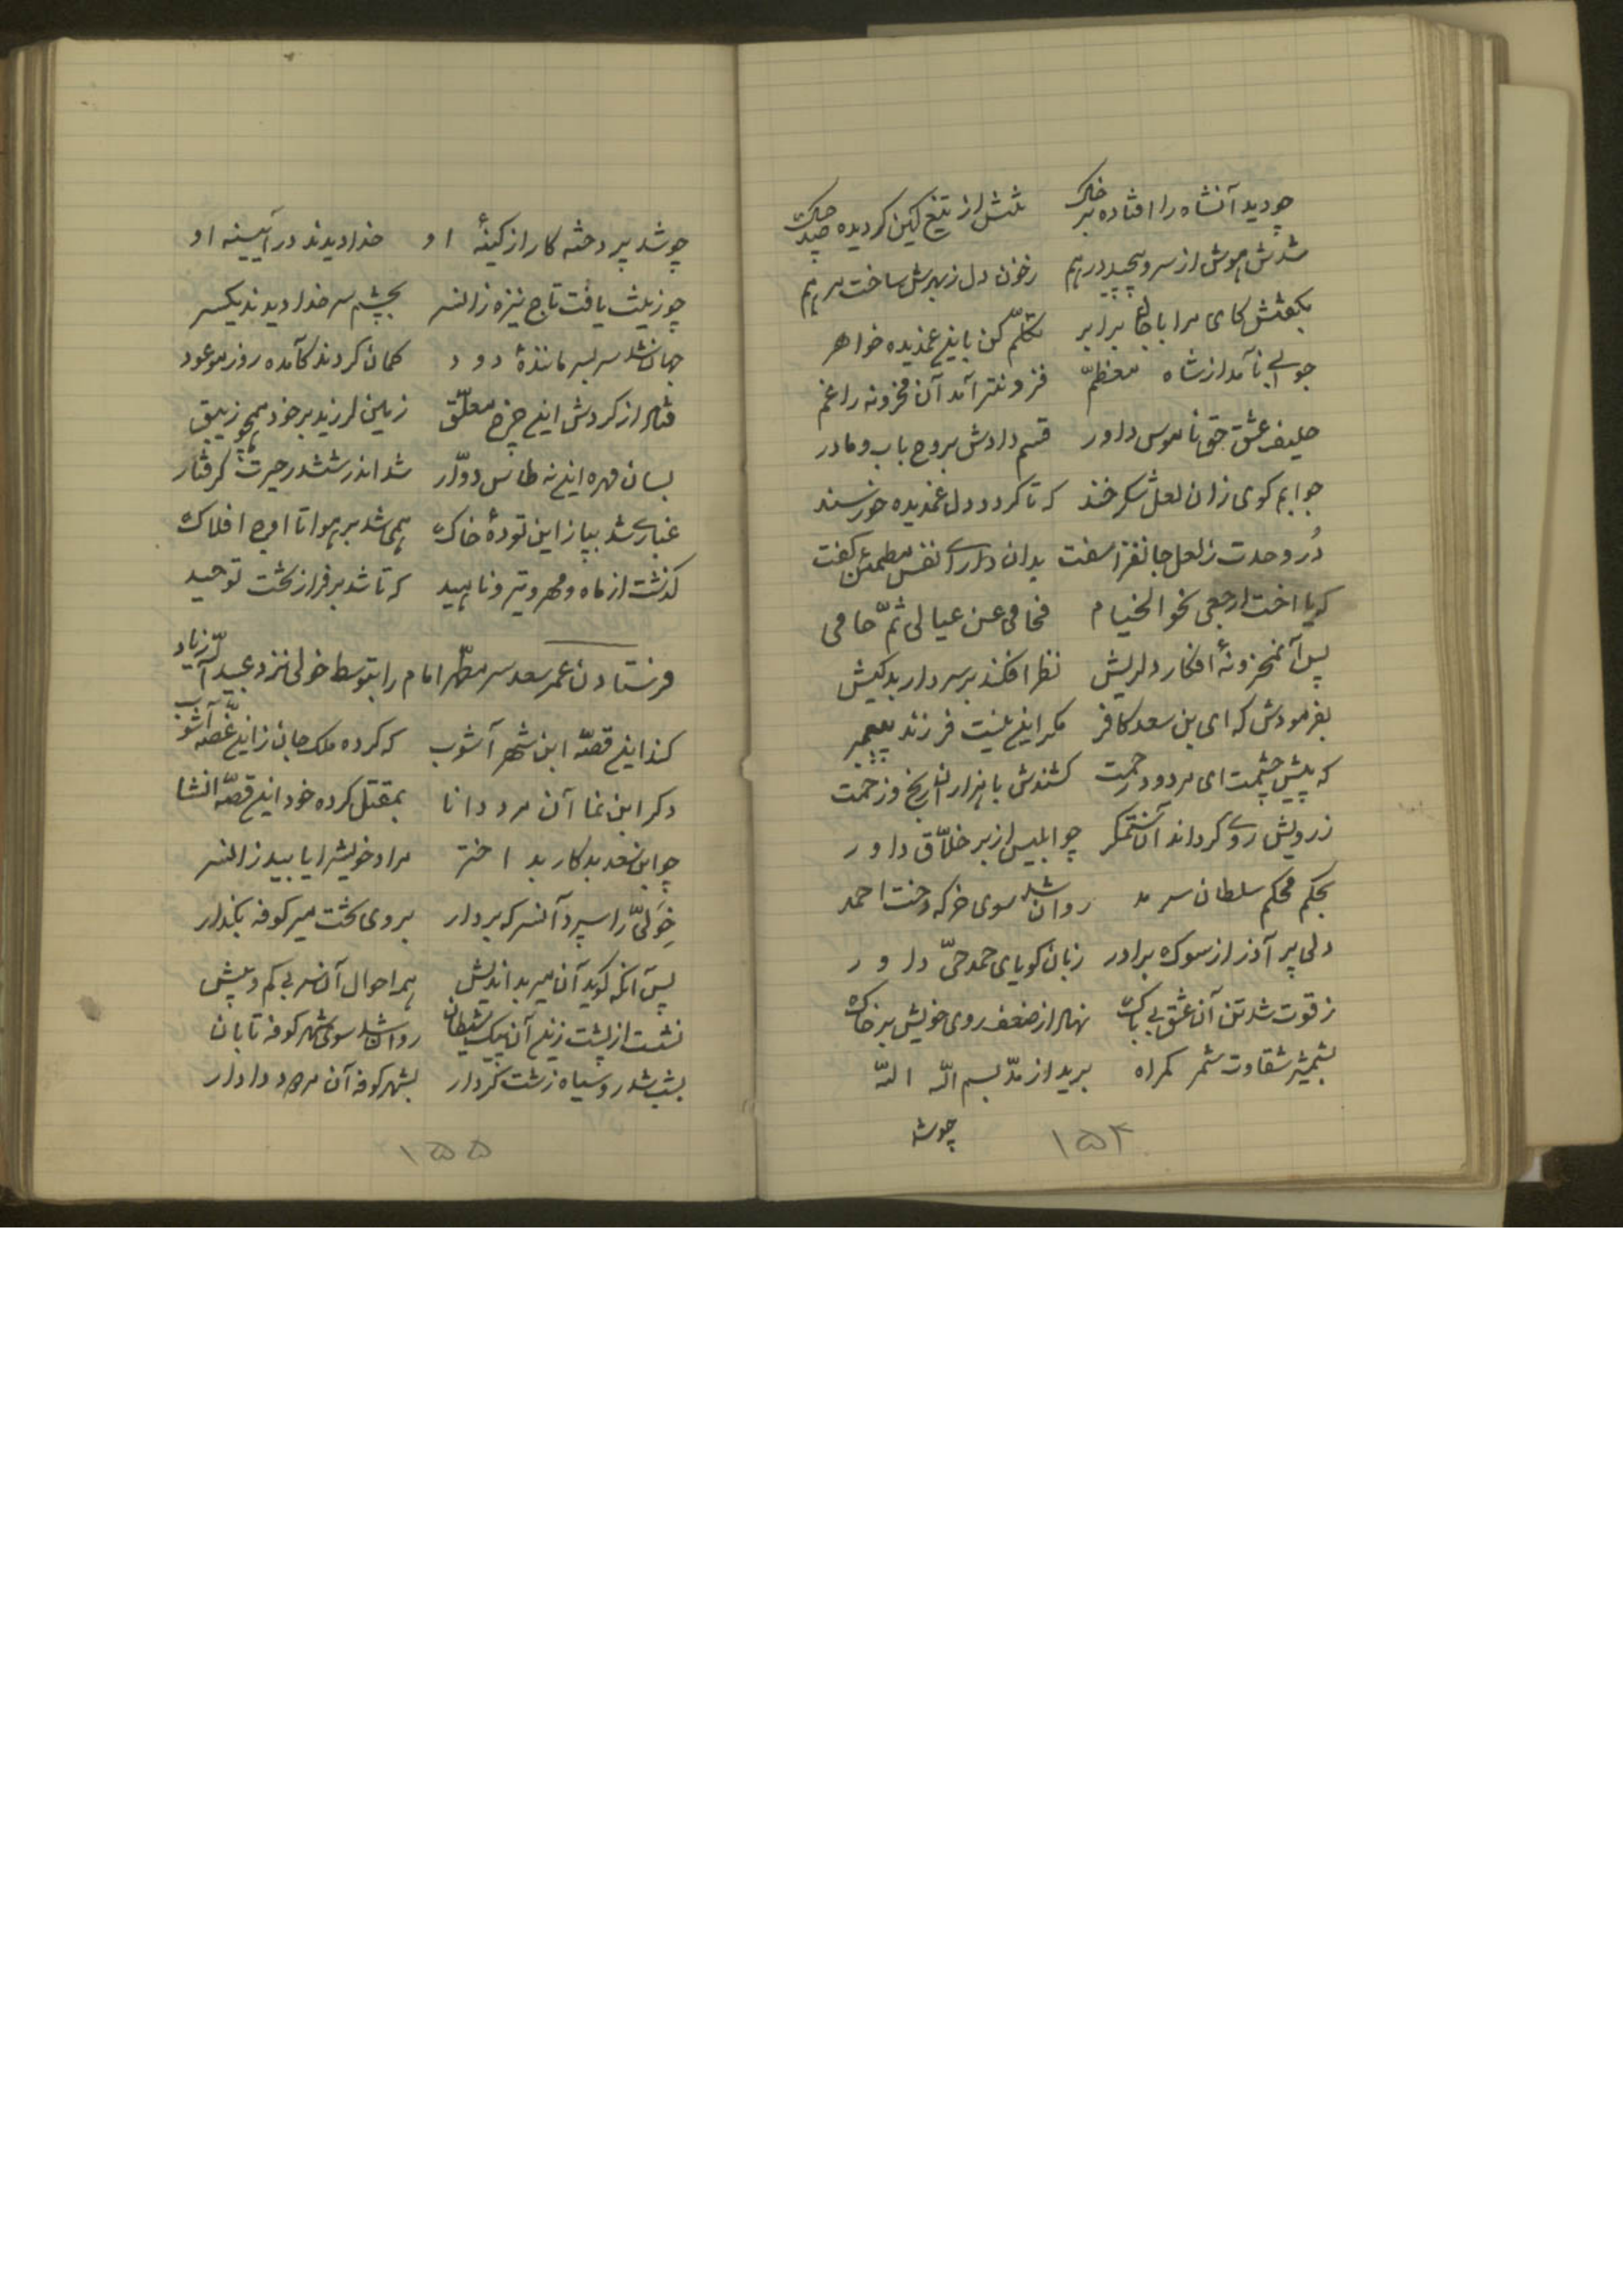 چو دید آنشاه را افتاده بر خاک تنش از تیغ کین گردیده صد چاک
شدش هوش از سر و پیچید در هم ز خون دل ز بهرش ساخت مرهم
بگفتش کای مرا با جان برابر تکلّم کن باین غمدیده خواهر
جوابی نامد از شاه معظّم فزونتر آمد آن محزونه را غم
حلیف عشق حق ناموس داور قسم دادش بروح باب و مادر
جوابم گوی زان لعل شکر خند که تا گردد دل غمدیده خورسند
دُر وحدت ز لعل جانفزا سفت بدان دارای نفس مطمئن گفت
که یا اخت ارجعی نحو الخیام فحامی عن عیالی ثمّ حامی
پس آنمحزونهٔ افکار دلریش نظر افکند بر سردار بدکیش
بفرمودش که ای بن سعد کافر مگر این نیست فرزند پیمبر
که پیش چشمت ای مردود رحمت کشندش با هزاران رنج و زحمت
ز رویش روی گرداند آن ستمگر چو ابلیس از بر خلّاق داور
بحکم محکم سلطان سرمد روان شد سوی خرگه دخت احمد
دلی پر آذر از سوک برادر زبان گویای حمد حیّ داور
ز قوت شد تن آن عشق بی باک نهاد از ضعف روی خویش بر خاک
بشمشیر شقاوت شمر گمراه برید از مدّ بسم الله الله
چوشد
۱۵۴
چو شد پردخته کار از کینهٔ او خدا دیدند در آیینه او
چو زینت یافت تاج نیزه زانسر بچشم سر خدا دیدند یکسر
جهان شد سر بسر مانندهٔ دود گمان کردند کآمده روز موعود
فتاد از گردش این چرخ معلّق زمین لرزید بر خود همچو زیبق
بسان مهره این نه طاس دوّار شد اندر ششدر حیرت گرفتار
غباری شد بپا ز این تودهٔ خاک همی شد بر هوا تا اوج افلاک
گذشت از ماه و مهر و تیر و ناهید که تا شد بر فراز تخت توحید
فرستادن عمر سعد سر مطهّر امام را بتوسط خولی نزد عبیدالله زیاد
کند این قصّه ابن شهر آشوب که کرده ملک جان ز این غصّه آشوب
دگر ابن نما آن مرد دانا بمقتل کرده خود این قصّه انشا
چو ابن سعد بدکار بد اختر مراد خویش را یابید زانسر
خَولیّ را سپرد آنسر که بردار بروی تخت میر کوفه بگذار
پس آنگه گوید آن میر بداندیش همه احوال آن سر بی کم و بیش
نشست از پشت زین آن پیک شیطان روان شد سوی شهر کوفه تابان
بشب شد روسیاه زشت کردار بشهر کوفه آن مردود دادار
۱۵۵